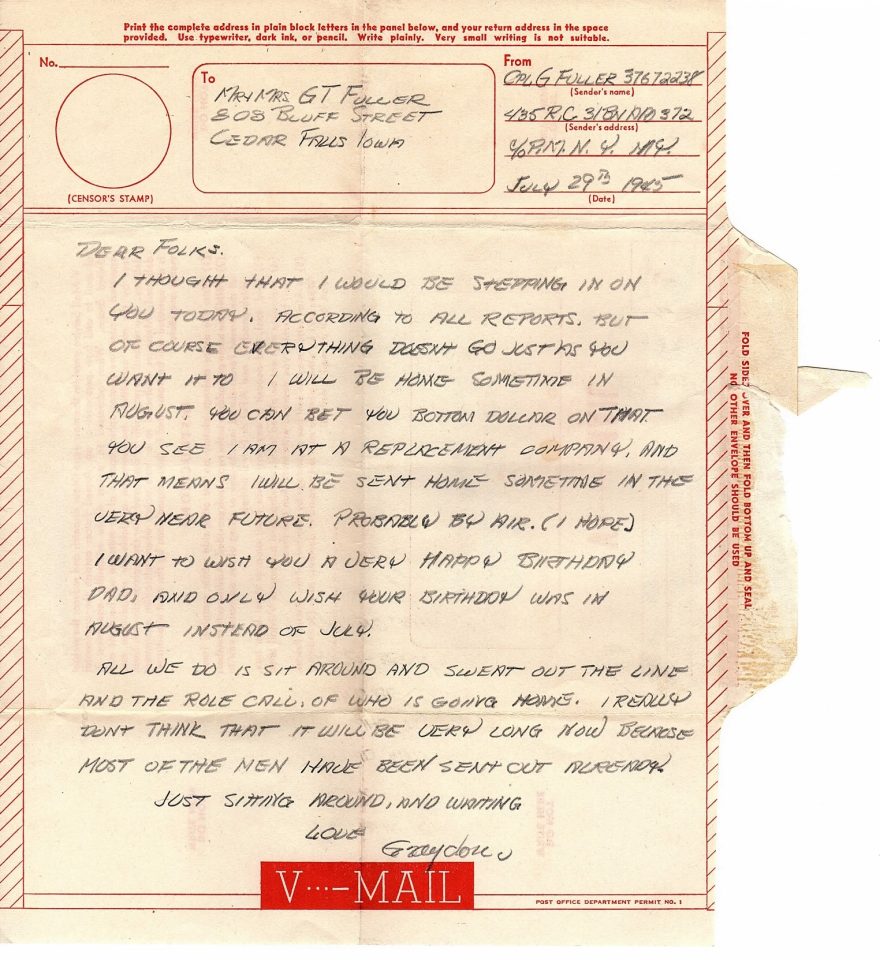 Print the complete address in plain block letters in the panel below, and your return address in the space
provided. Use typewriter, dark ink, or pencil. Write plainly. Very small writing is not suitable.
No.
(CENSOR'S STAMP)
To
MR & MRS GT FULLER
808 BLUFF STREET
CEDAR FALLS IOWA
From
CPL G FULLER 37672238
(Sender's name)
435 R.C. 31BN APO 372
(Sender's address)
C/O P.M. N.Y. N.Y.
JULY 29TH 1945
(Date)
DEAR FOLKS.
I THOUGHT THAT I WOULD BE STEPPING IN ON
YOU TODAY. ACCORDING TO ALL REPORTS. BUT
OF COURSE EVERYTHING DOESNT GO JUST AS YOU
WANT IT TO I WILL BE HOME SOMETIME IN
AUGUST. YOU CAN BET YOU BOTTOM DOLLAR ON THAT.
YOU SEE I AM AT A REPLACEMENT COMPANY. AND
THAT MEANS I WILL BE SENT HOME SOMETIME IN THE
VERY NEAR FUTURE. PROBABLY BY AIR. (I HOPE)
I WANT TO WISH YOU A VERY HAPPY BIRTHDAY
DAD, AND ONLY WISH YOUR BIRTHDAY WAS IN
AUGUST INSTEAD OF JULY.
ALL WE DO IS SIT AROUND AND SWEAT OUT THE LINE
AND THE ROLE CALL, OF WHO IS GOING HOME. I REALLY
DONT THINK THAT IT WILL BE VERY LONG NOW BECAUSE
MOST OF THE MEN HAVE BEEN SENT OUT ALREADY.
JUST SITTING AROUND, AND WAITING
LOVE
Graydon
V···—MAIL
POST OFFICE DEPARTMENT PERMIT NO. 1
FOLD SIDES OVER AND THEN FOLD BOTTOM UP AND SEAL
NO OTHER ENVELOPE SHOULD BE USED